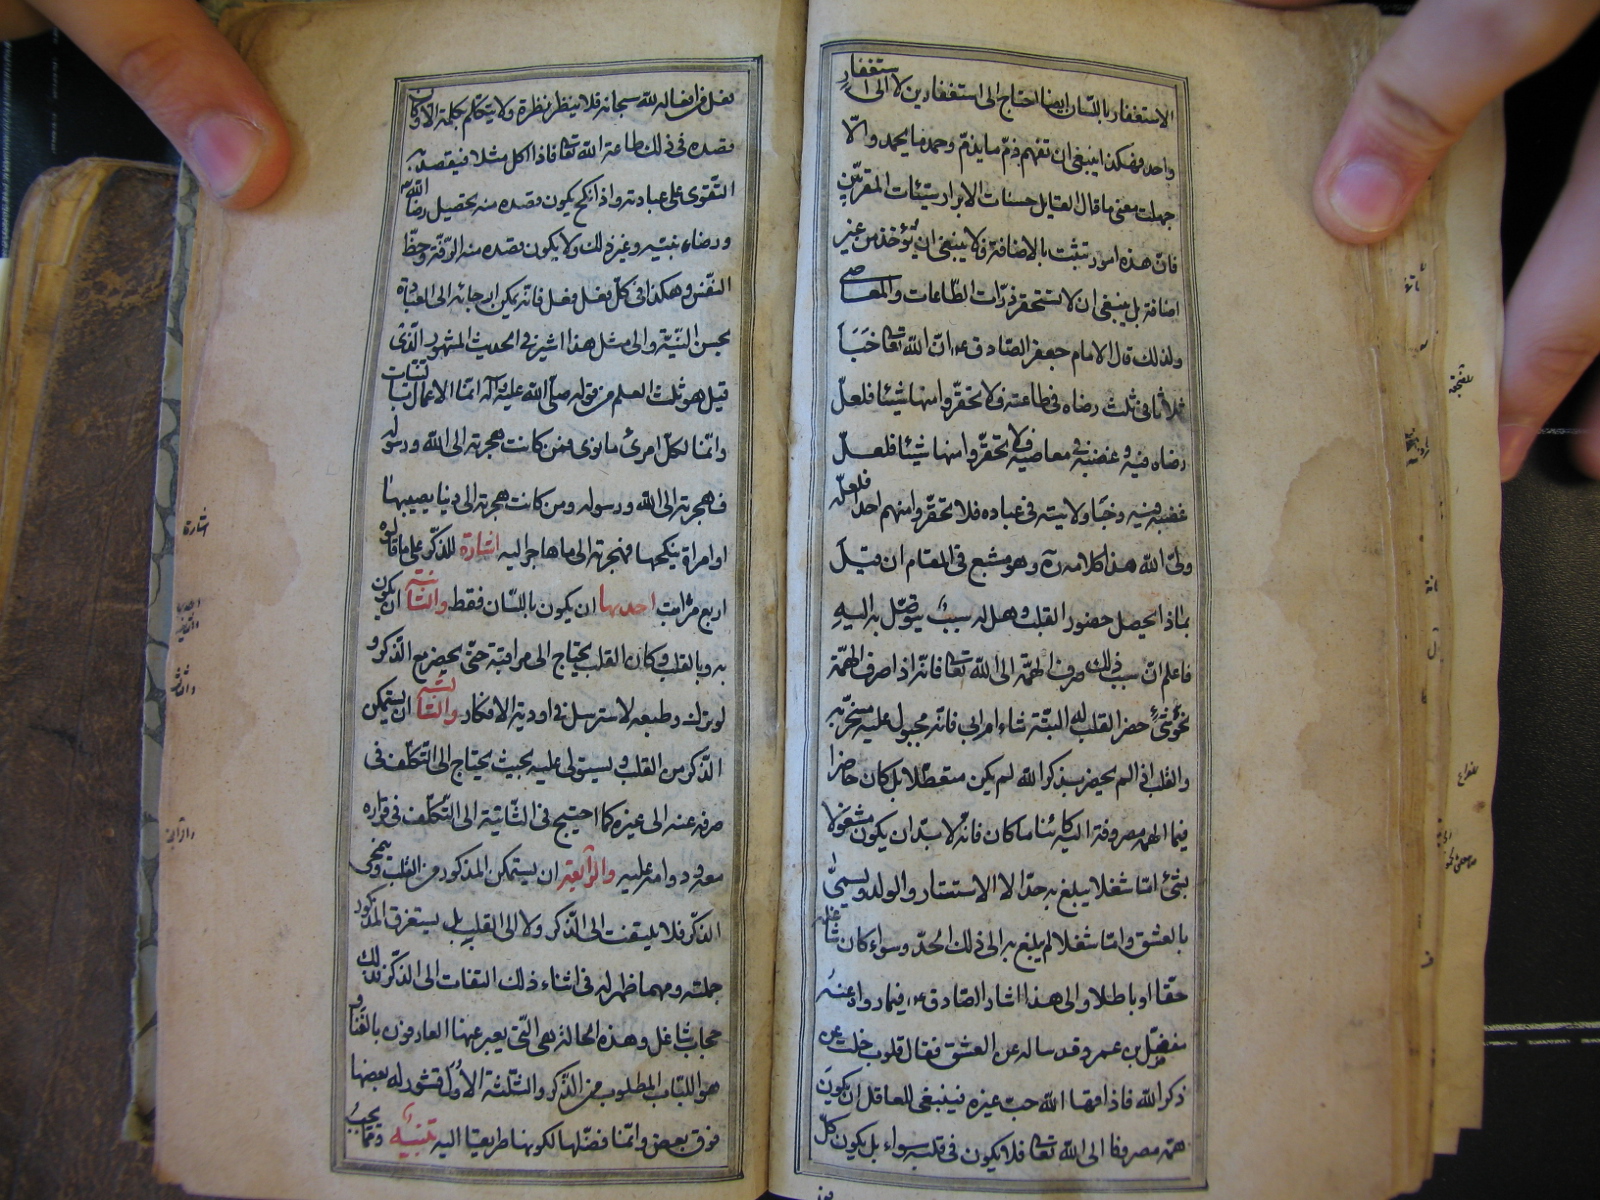 الاستغفار باللسان ايضا احتاج الى استغفارين لا الى استغفار
واحد فهكذا ينبغى ان تفهم ذم ما يذم وحمد ما يحمد والا
جهلت معنى ما قال القايل حسنات الابرار سيئات المقربين
فان هذه امور تثبت بالاضافة فلا ينبغى ان تؤخذ من غير
اضافة بل ينبغى ان لا تستحقر ذرات الطاعات والمعاصى
ولذلك قال الامام جعفر الصادق ع ان الله تعالى خبأ
ثلاثا فى ثلث رضاه فى طاعته فلا تحقروا منها شيئا فلعل
رضاه فيه و غضبه فى معاصيه فلا تحقروا منها شيئا فلعل
غضبه فيه وخبأ ولايته فى عباده فلا تحقروا منهم احدا فلعله
ولى الله هذا كلامه ره وهو مشبع فى المقام ان قيل
بماذا يحصل حضور القلب وهل له سبب يتوصل به اليه
فاعلم ان سبب ذلك صرف الهمة الى الله تعالى فانه اذا صرف الهمة
نحو شئ حضر القلب له البتة شاء ام ابى فانه مجبول عليه مسخر به
والقلب اذا لم يحضر بذكر الله لم يكن متعطلا بل كان حاضرا
فيما الهمة مصروفة اليه كائنا ما كان فانه لا بد ان يكون مشغولا
بشئ اما شغلا يبلغ به حد الاستهتار والوله ويسمى
بالعشق واما شغلا لم يبلغ به الى ذلك الحد وسواء كان شاغله
حقا او باطلا والى هذا اشار الصادق ع فيما رواه عنه
مفضل بن عمر وقد ساله عن العشق فقال قلوب خلت عن
ذكر الله فاذاقها الله حب غيره فينبغى للعاقل ان يكون
همه مصروفا الى الله تعالى فلا يكون فى قلبه سواه بل يكون كل
فعل من افعاله لله سبحانه فلا ينظر نظرة ولا يتكلم بكلمة الا وكان
قصده فى ذلك طاعة الله تعالى فاذا اكل مثلا فيقصد به
التقوى على عبادته واذا نكح يكون قصده منه تحصيل رضا الله
ورضاء نبيه وغير ذلك ولا يكون قصده منه الرفث وحظ
النفس وهكذا فى كل فعل فعل فانه يمكن ارجائه الى العبادة
بحسن النية والى مثل هذا اشير فى الحديث المشهور الذى
قيل هو ثلث العلم من قوله صلى الله عليه وآله انما الاعمال بالنيات
وانما لكل امرئ ما نوى فمن كانت هجرته الى الله ورسوله
فهجرته الى الله ورسوله ومن كانت هجرته الى دنيا يصيبها
او امراة ينكحها فهجرته الى ما هاجر اليه اشارة للذكر على ما قالوه
اربع مراتب احديها ان يكون باللسان فقط والثانية ان يكون
به وبالقلب وكان القلب يحتاج الى مراقبة حتى يحضر مع الذكر و
لو ترك وطبعه لاسترسل فى اودية الافكار والثالثة ان يستمكن
الذكر من القلب و يستولى عليه بحيث يحتاج الى التكلف فى
صرفه عنه الى غيره كما احتيج فى الثانية الى التكلف فى قراره
معه ودوامه عليه والرابعة ان يستمكن المذكور من القلب وينمحى
الذكر فلا يلتفت الى الذكر ولا الى القلب بل يستغرق المذكور
جملته ومهما ظهر له فى اثناء ذلك التفات الى الذكر فذلك
حجاب شاغل وهذه الحالة هى التى يعبر عنها العارفون بالفناء و
هو اللباب المطلوب من الذكر والثلثة الاول قشور له بعضها
فوق بعض وانما فضلها لكونها طريقا اليه تنبيه وقما يجب
اشارة
احديها
والثانية
والثالثة
والرابعة